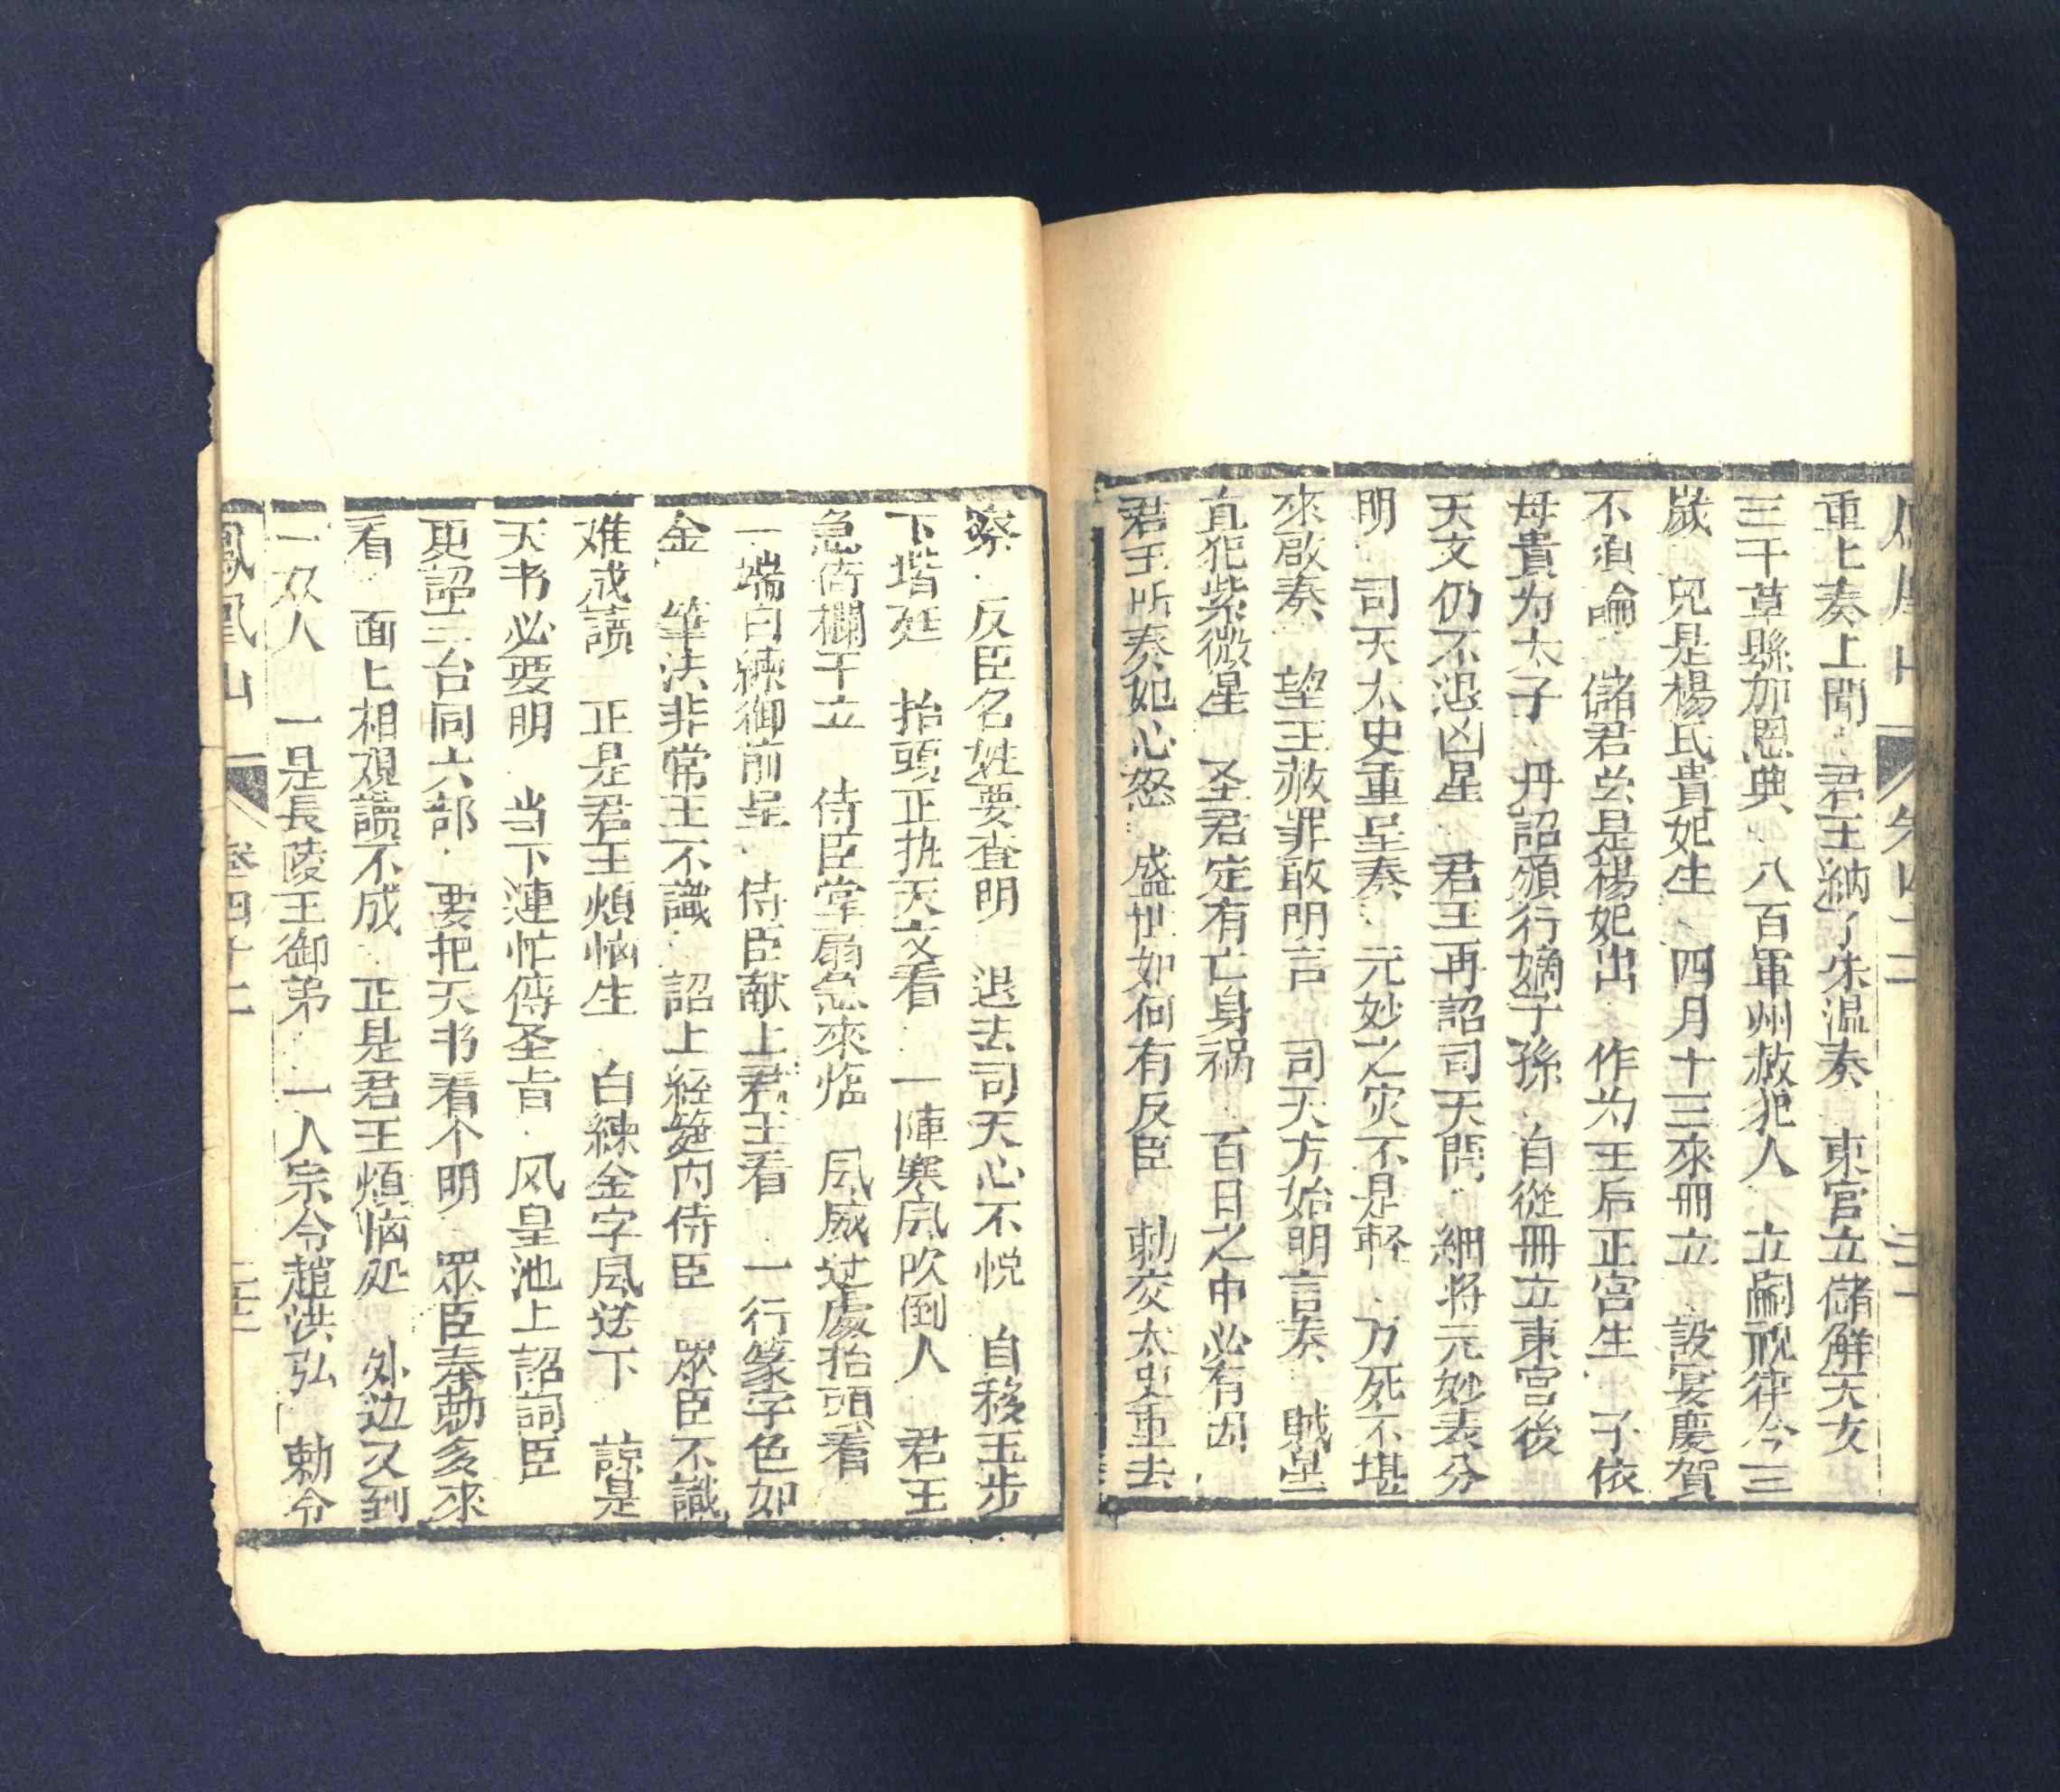 重上奏上聞 君王納了朱温奏 東宫立儲觧天女
三千草縣加恩典 八百軍州赦犯人 立嗣祝徍今三
歲 児是楊氏貴妃生 四月十三來冊立 設宴慶賀
不須論 儲君必是楊妃出 作为王后正宫生 子依
母貴为太子 丹詔頒行嫡子孫 自從冊立東宫後
天文仍不退凶星 君王再詔司天問 細将元妙表分
明 司天太史重呈奏 元妙之灾不是軽 万死不堪
來啟奏 望王赦罪敢明言 司天方始明言奏 賊星
直犯紫微星 圣君定有亡身祸 百日之中必有因
君王听奏起心怒 盛世如何有反臣 勅交太史重去
察 反臣名姓要查明 退去司天心不悦 自移玉步
下堦廷 抬頭正执天文看 一陣寒風吹倒人 君王
急倚欄干立 侍臣掌扇急來临 風威过處抬頭看
一端白練御前呈 侍臣献上君王看 一行篆字色如
金 筆法非常王不識 詔上経筵内侍臣 眾臣不識
难成讀 正是君王煩恼生 白練金字風送下 諒是
天书必要明 当下連忙傳圣旨 风皇池上詔詞臣
更詔三台同六部 要把天书看个明 眾臣奉勅多來
看 面上相覌讀不成 正是君王煩恼处 外边又到
一双人 一是長陵王御弟 一人宗令趙洪弘 勅令
鳳凰山 卷四十二